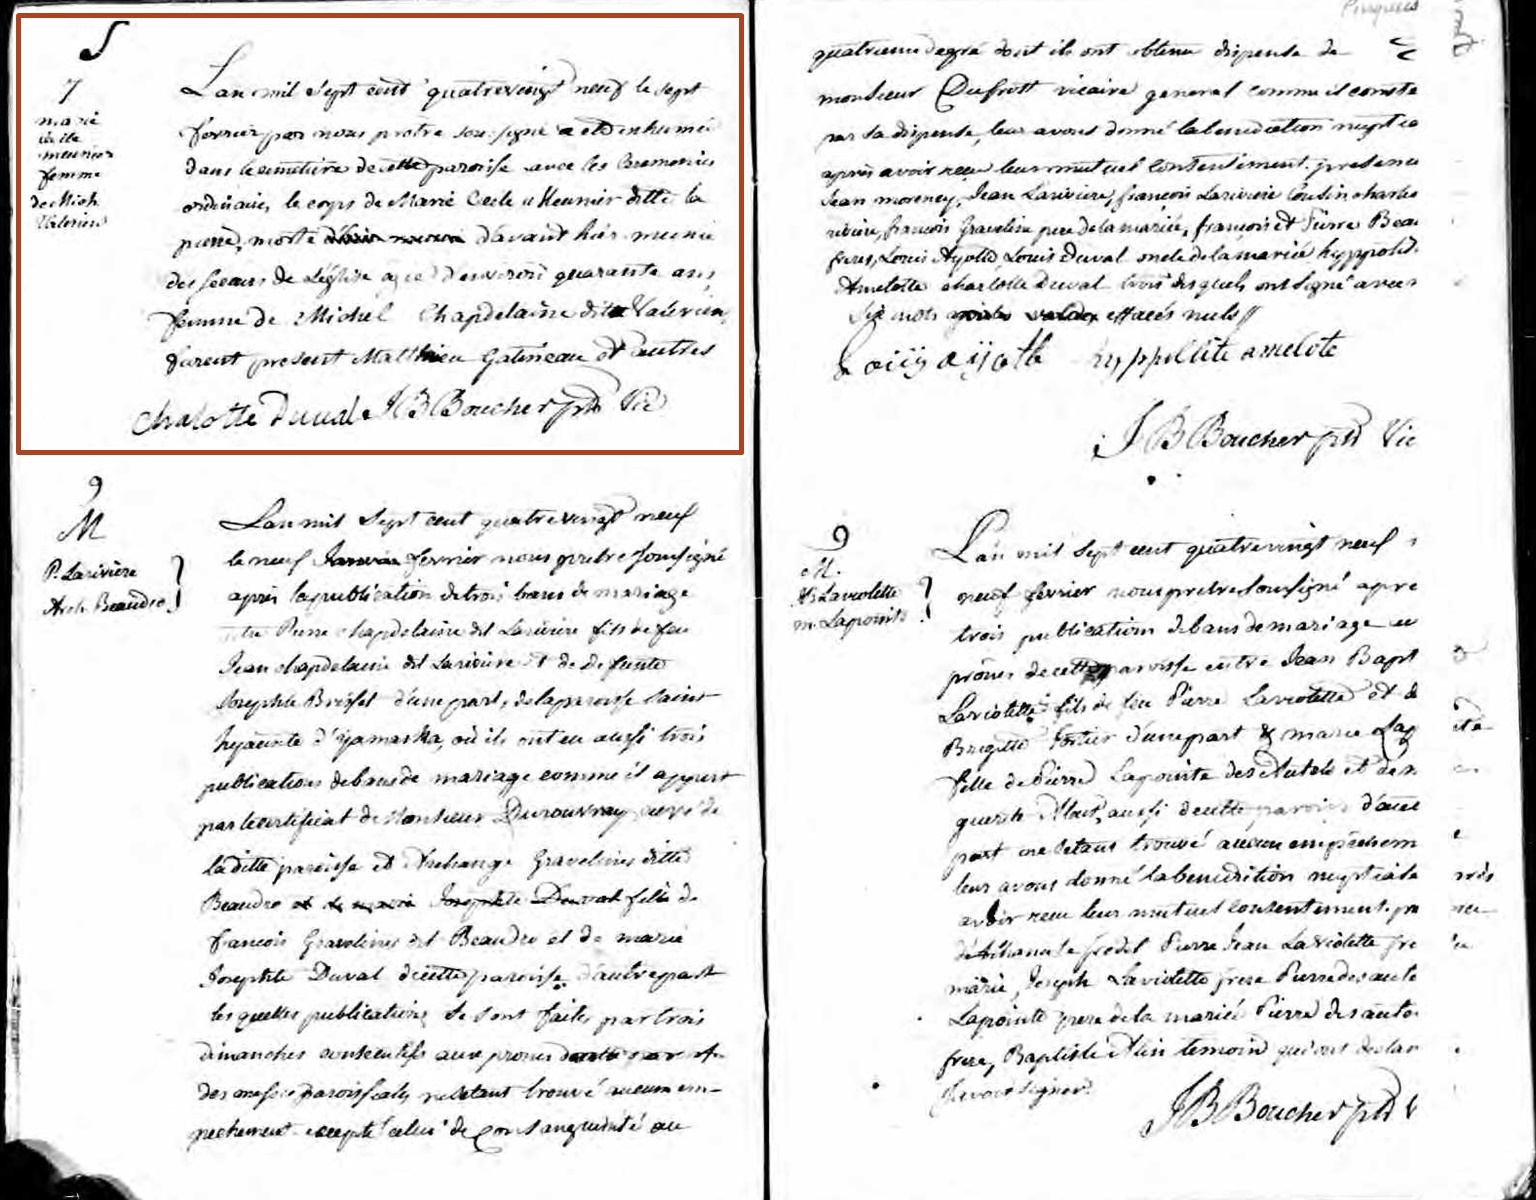 S
7
marie
cecile
meunier
femme
de Mich
Valerien
Lan mil sept cent quatrevingt neuf le sept
fevrier par nous prêtre soussigné a eté inhumé
dans le cimetiere de cette paroisse avec les Ceremonies
ordinaires le corps de Marie Cecile Meunier ditte la
pierre, morte d'avant hier munie
des secours de L'église agée d'environ quarante ans
femme de Michel Chapdelaine dit Valerien,
furent present Matthieu Gatineau et autres
charlotte duval J B Boucher ptr Vic
9
M
P. Larivière
Arch. Beaudro
Lan mil Sept cent quatrevingt neuf
le neuf Janvier fevrier nous prêtre soussigné
après la publication de trois bans de mariage
entre Pierre chapdelaine dit Larivière fils de feu
Jean chapdelaine dit Larivière et de defunte
Josephte Brisset d'une part, de la paroisse saint
hyacinte d'yamaska, où ils ont eu aussi trois
publications de bans de mariage comme il appert
par le certificat de Monsieur Durouvray curé de
la ditte paroisse et Archange Gravelines ditte
Beaudro et de marie Josephte Duval fille de
francois Gravelines dit Beaudro et de marie
Josephte Duval de cette paroisse d'autre part
les quelles publications se sont faites par trois
dimanches consecutifs aux prones
des messes paroissiales ne s'etant trouvé aucun em-
pechement excepté celui de Consanguinité au
quatrieme degré dont ils ont obtenu dispense de
monsieur Dufrost vicaire general comme il conste
par sa dispense, leur avons donné la benediction nuptia
après avoir reçu leur mutuel consentement. presence
Jean morency, Jean Larivière, françois Larivière Cousin charles
rivière, françois Graveline pere de la mariée, françois et Pierre Beau
freres, Louis Ayotte, Louis Duval oncle de la mariée hyppolit
Amelotte charlotte duval trois desquels ont signé avec n
Six mots effacés nuls
Louiy aiiotte hyppillite amelote
J B Boucher ptr Vic
9
M.
Bt Laviolette
m. Lapointe
Lan mil sept cent quatrevingt neuf
neuf fevrier nous prêtre soussigné apre
trois publications de bans de mariage au
prônes de cette paroisse entre Jean Bapt
Laviolette fils de feu Pierre Laviolette et de
Brigitte Fortier d'une part & marie Lap
fille de Pierre Lapointe des Autels et de m
guerite Alain, aussi de cette paroisse d'autre
part ne s'etant trouvé aucun empechem
leur avons donné la benediction nuptiale
avoir reçu leur mutuel consentement. pre
Pierre Jean Laviolette fre
marié, Joseph Laviolette frere Pierre des autel
Lapointe pere de la mariée Pierre des autel
frere, Baptiste Alin temoin qui ont declar
scavoir signer.
J B Boucher ptr V